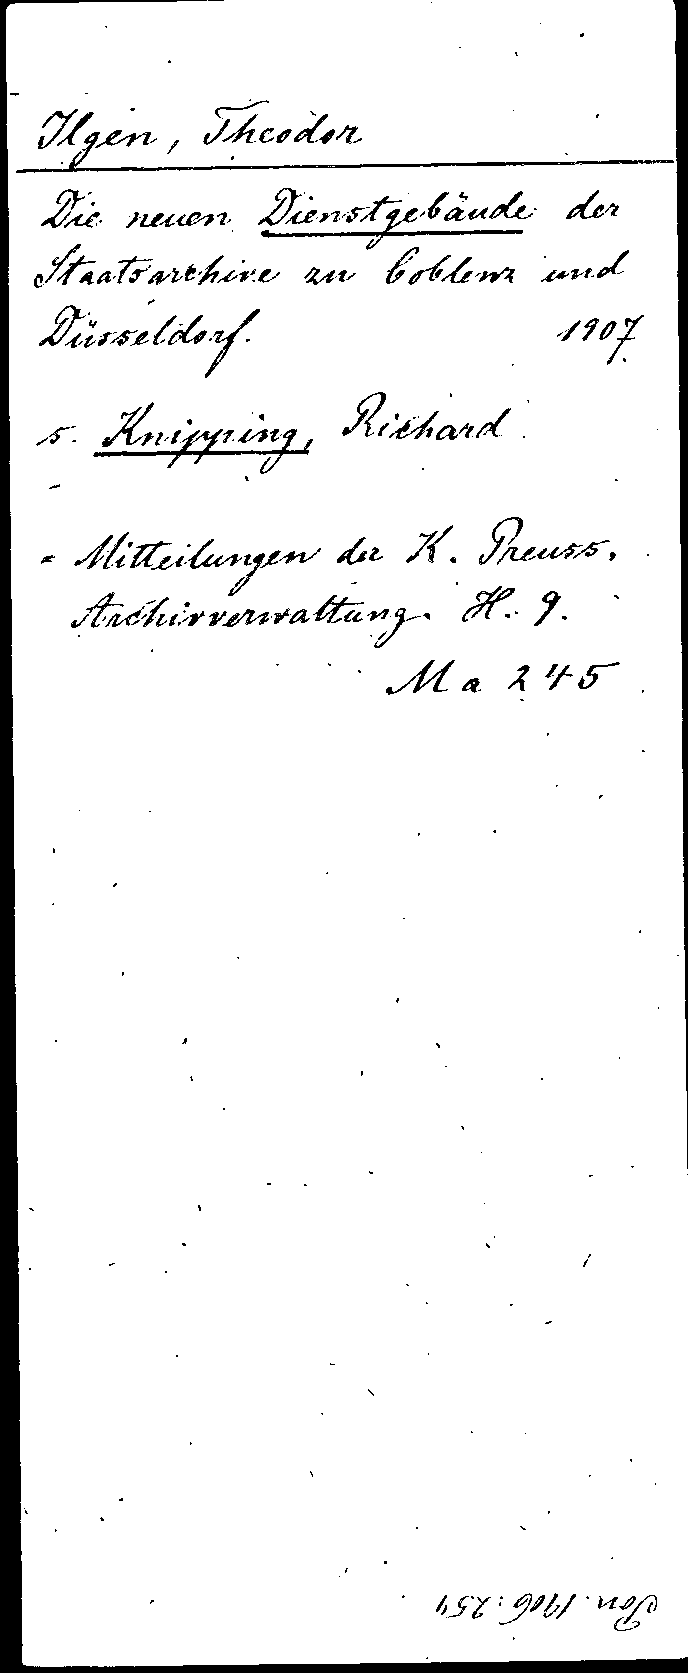 Ilgen, Theodor
Die neuen Dienstgebäude der
Staatsarchive zu Coblenz und
Düsseldorf. 1907
s. Knipping, Richard
= Mitteilungen der K. Preuss.
Archivverwaltung. H. 9.
Ma 245
1906:254